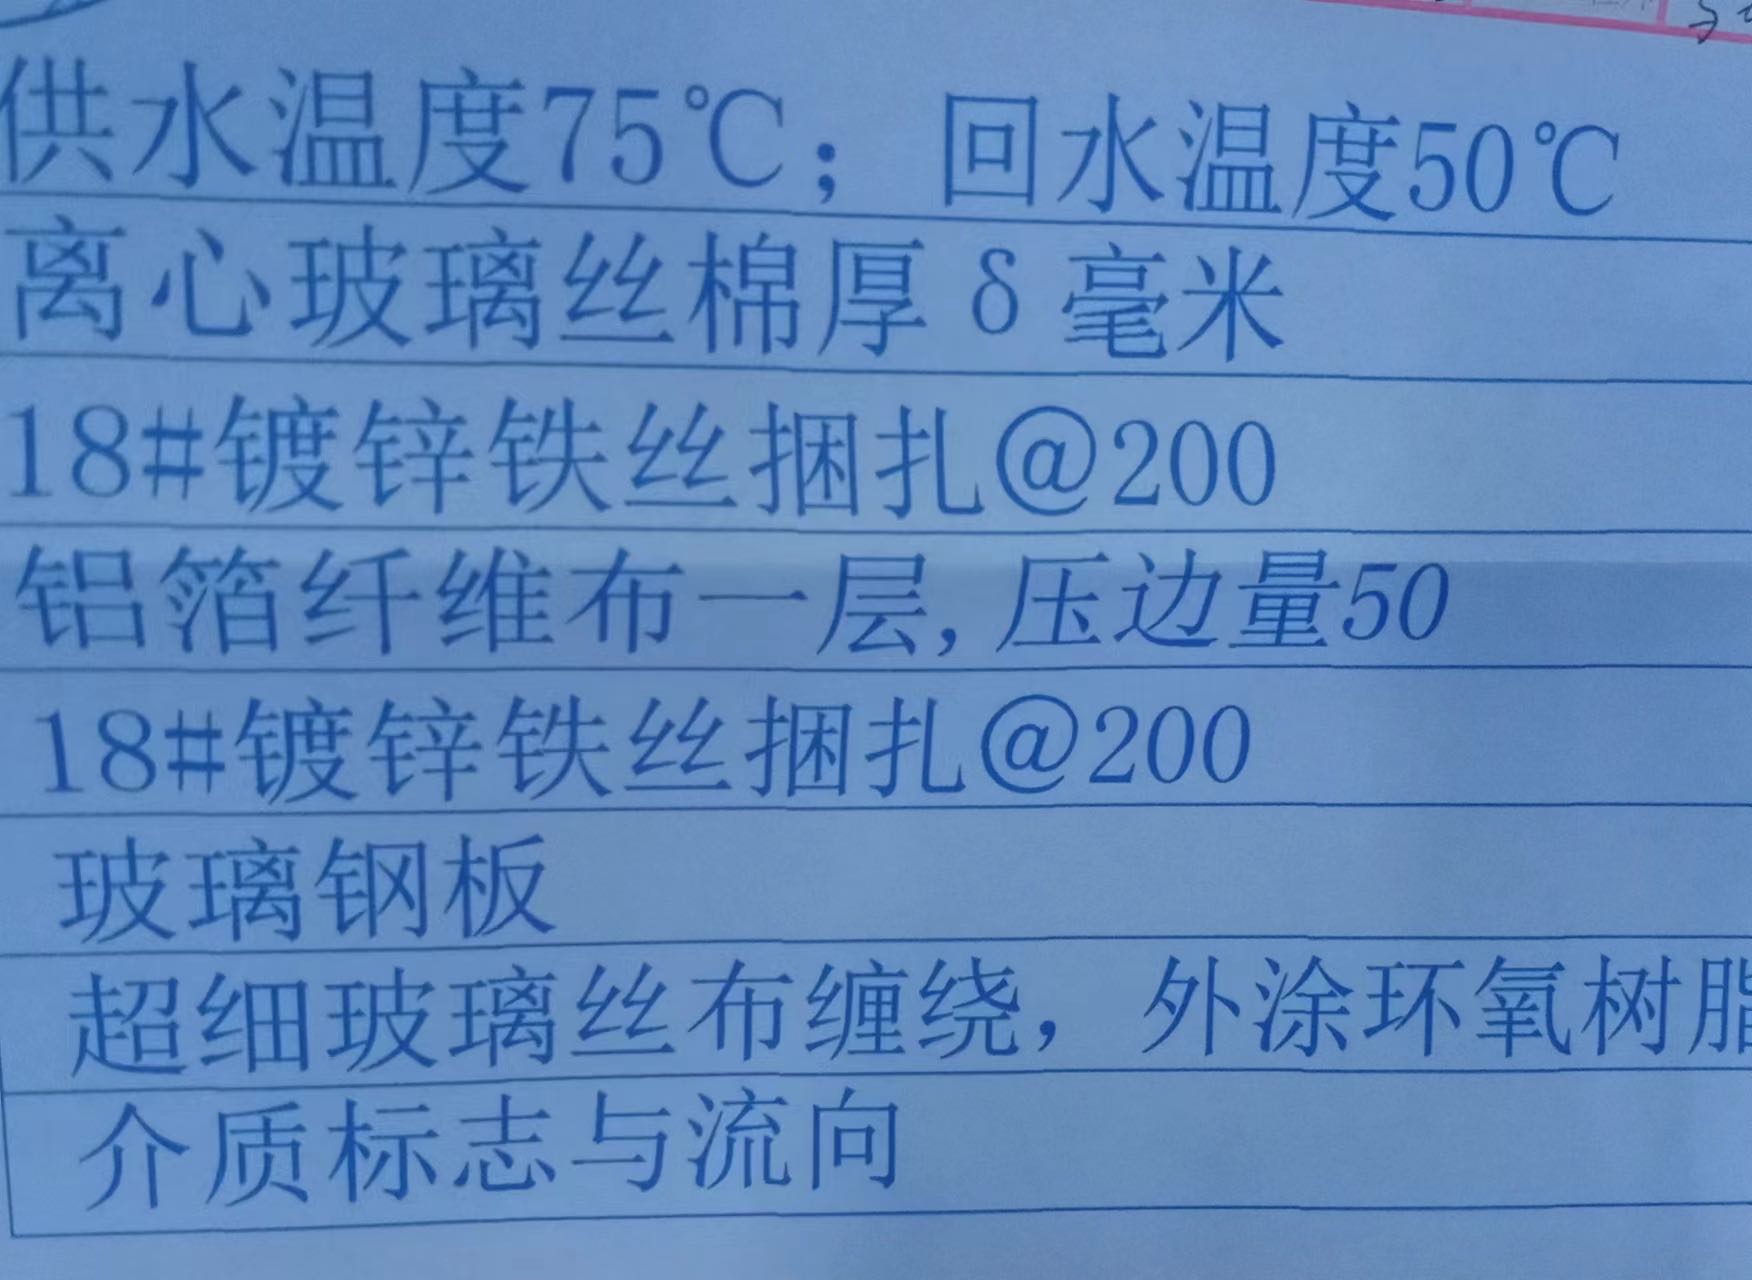 供水温度75℃；回水温度50℃
离心玻璃丝棉厚δ毫米
18#镀锌铁丝捆扎@200
铝箔纤维布一层,压边量50
18#镀锌铁丝捆扎@200
玻璃钢板
超细玻璃丝布缠绕，外涂环氧树脂
介质标志与流向